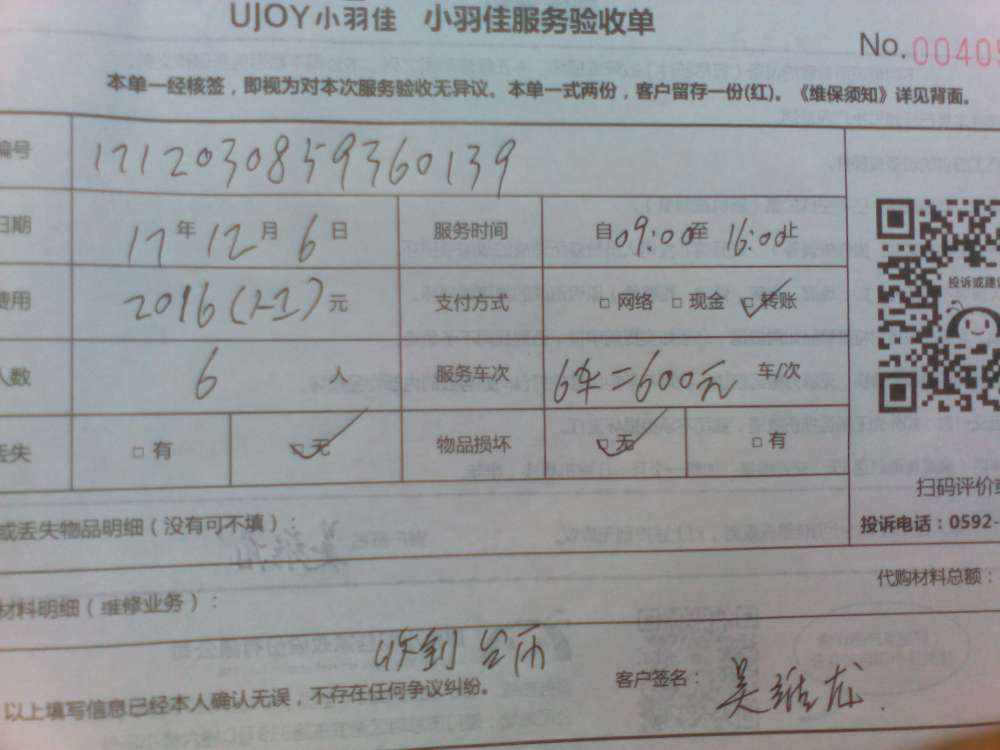 UJOY小羽佳 小羽佳服务验收单
No. 00405
本单一经核签，即视为对本次服务验收无异议。本单一式两份，客户留存一份(红)。《维保须知》详见背面。
编号 1712030859360139
日期 17 年 12 月 6 日 服务时间 自09:00至16:00止
费用 2016 元 支付方式 □ 网络 □ 现金 ☑ 转账
人数 6 人 服务车次 6车=600元 车/次
丢失 □ 有 ☑ 无 物品损坏 ☑ 无 □ 有
投诉或建议
扫码评价或
投诉电话：0592-
或丢失物品明细（没有可不填）：
代购材料总额：
材料明细（维修业务）：
收到
以上填写信息已经本人确认无误，不存在任何争议纠纷。 客户签名：